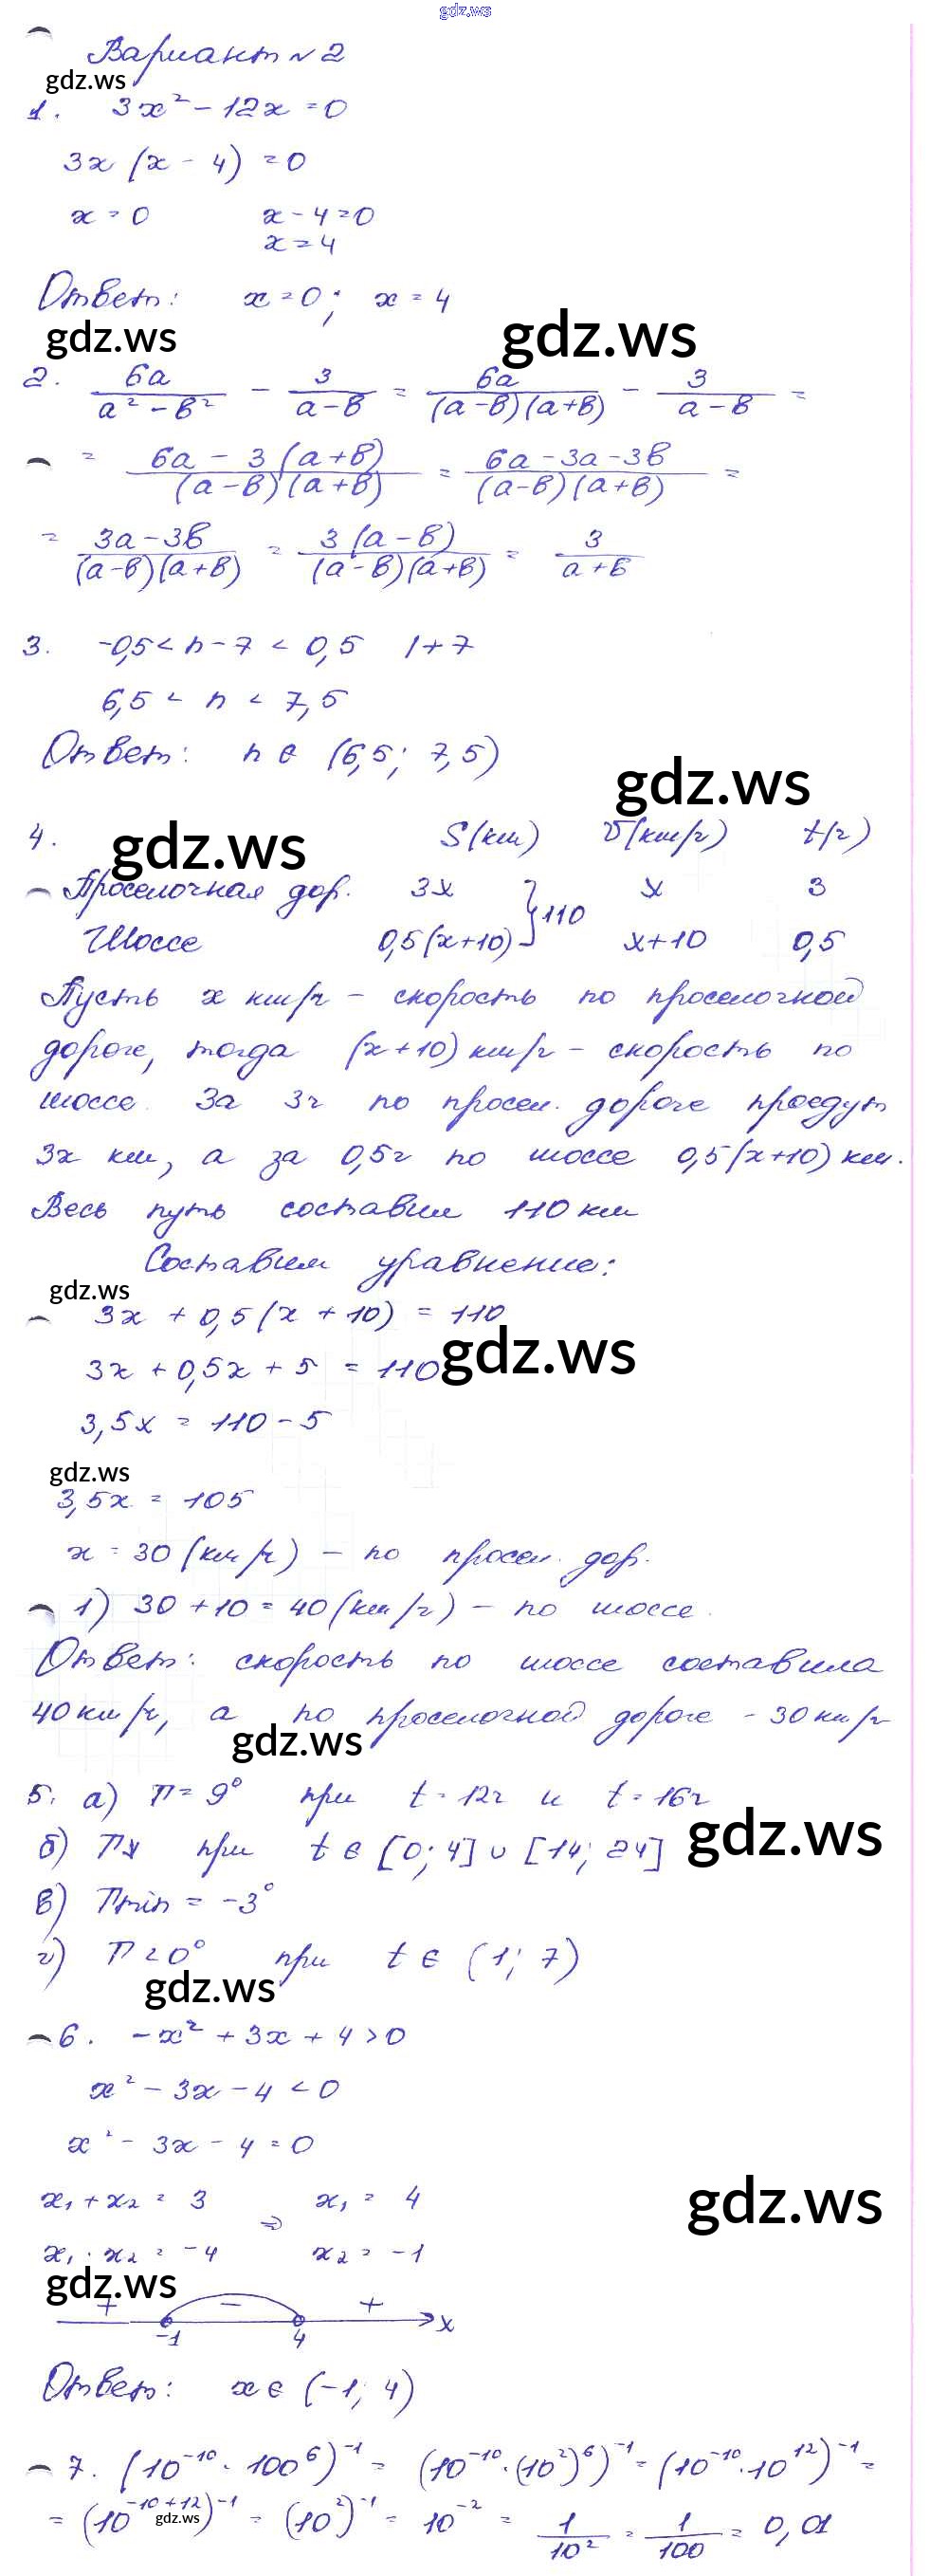 gdz.ws
Вариант № 2
gdz.ws
1. 3x² - 12x = 0
3x (x - 4) = 0
x = 0 x - 4 = 0
x = 4
Ответ: x = 0; x = 4
gdz.ws gdz.ws
2. 6a/(a² - в²) - 3/(a - в) = 6a/((a - в)(a + в)) - 3/(a - в) =
= (6a - 3(a + в))/((a - в)(a + в)) = (6a - 3a - 3в)/((a - в)(a + в)) =
= (3a - 3в)/((a - в)(a + в)) = 3(a - в)/((a - в)(a + в)) = 3/(a + в)
3. -0,5 < n - 7 < 0,5 | + 7
6,5 < n < 7,5
Ответ: n ∈ (6,5; 7,5)
gdz.ws
4. S(км) v(км/ч) t(ч)
gdz.ws
Проселочная дор. 3x } 110 x 3
Шоссе 0,5(x+10) x+10 0,5
Пусть x км/ч - скорость по проселочной
дороге, тогда (x+10) км/ч - скорость по
шоссе. За 3ч по просел. дороге проедут
3x км, а за 0,5ч по шоссе 0,5(x+10) км.
Весь путь составил 110 км
Составим уравнение:
gdz.ws
3x + 0,5(x + 10) = 110
gdz.ws
3x + 0,5x + 5 = 110
3,5x = 110 - 5
gdz.ws
3,5x = 105
x = 30 (км/ч) - по просел. дор.
1) 30 + 10 = 40 (км/ч) - по шоссе.
Ответ: скорость по шоссе составила
40 км/ч, а по проселочной дороге - 30 км/ч
gdz.ws
5. а) T = 9° при t = 12ч и t = 16ч
gdz.ws
б) T↓ при t ∈ [0; 4] ∪ [14; 24]
в) Tmin = -3°
г) T < 0° при t ∈ (1; 7)
gdz.ws
6. -x² + 3x + 4 > 0
x² - 3x - 4 < 0
x² - 3x - 4 = 0
x₁ + x₂ = 3 ⇒ x₁ = 4
gdz.ws
x₁ · x₂ = -4 x₂ = -1
gdz.ws
+ - +
-1 4 x
Ответ: x ∈ (-1; 4)
7. (10⁻¹⁰ · 100⁶)⁻¹ = (10⁻¹⁰ · (10²)⁶)⁻¹ = (10⁻¹⁰ · 10¹²)⁻¹ =
= (10⁻¹⁰⁺¹²)⁻¹ = (10²)⁻¹ = 10⁻² = 1/10² = 1/100 = 0,01
gdz.ws